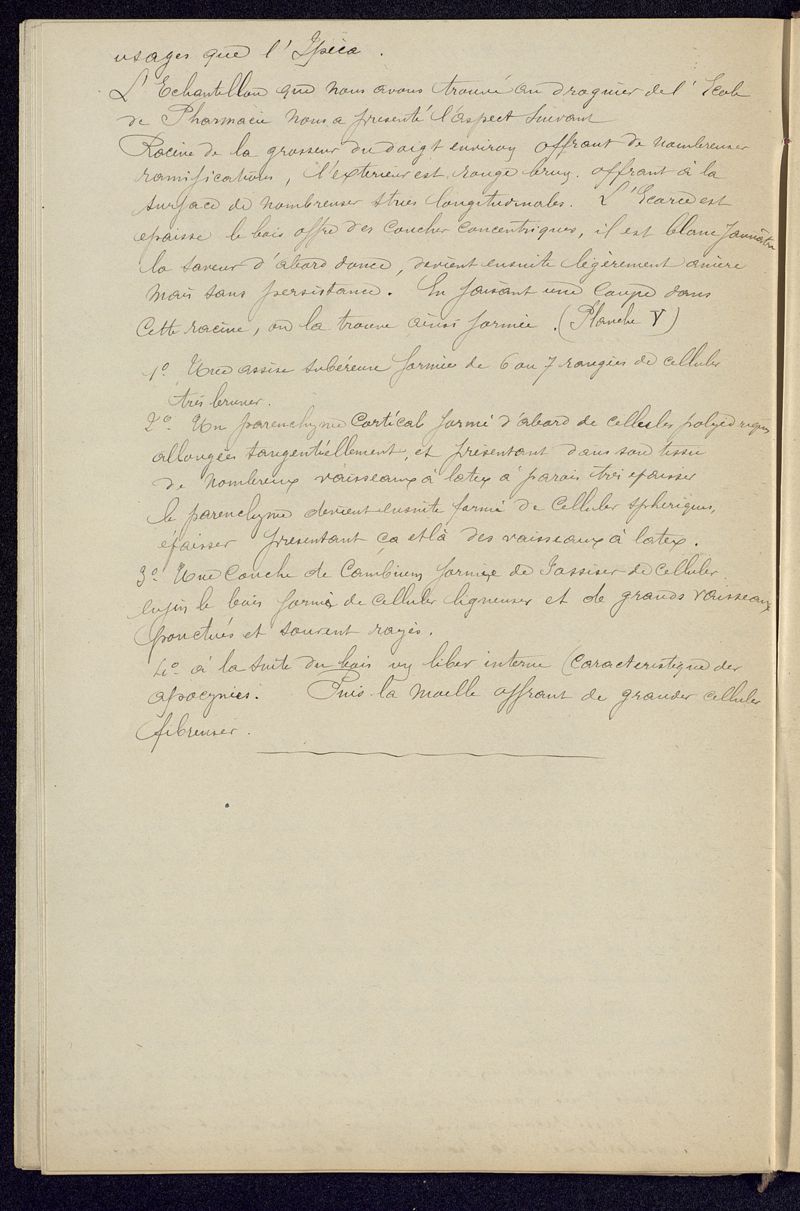 usages que l'Ipéca.
L'Echantillon que nous avons trouvé au droguier de l'Ecole
de Pharmacie nous a présenté l'aspect suivant
Racine de la grosseur du doigt environ offrant de nombreuses
ramifications, l'exterieur est rouge brun. offrant à la
surface de nombreuses stries longitudinales. L'Ecorce est
épaisse le bois offre des couches concentriques, il est blanc jaunâtre
la saveur d'abord douce, devient ensuite légèrement amère
mais sans persistance. En faisant une coupe dans
cette racine, on la trouve ainsi formée. (Planche V)
1º Une assise subéreuse formée de 6 ou 7 rangées de cellules
très brunes.
2º Un parenchyme cortical formé d'abord de cellules polyédriques
allongées tangentiellement, et présentant dans son tissu
de nombreux vaisseaux à latex à parois très épaisses
le parenchyme devient ensuite formé de cellules spheriques,
épaisses présentant ça et là des vaisseaux à latex.
3º Une couche de Cambium formée de 5 assises de cellules
enfin le bois formé de cellules ligneuses et de grands vaisseaux
ponctués et souvent rayés.
4º à la suite du bois un liber interne (caracteristique des
apocynées. Puis la moelle offrant de grandes cellules
fibreuses.